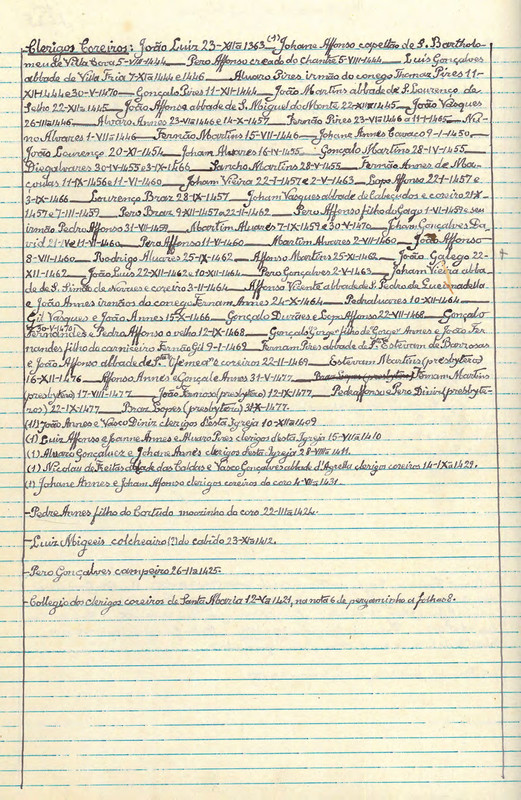 Clerigos Coreiros: João Luiz 23-XII-1363 (1) Johane Affonso capellão de S. Bartholo-
meu de Villa Cova 5-VIII-1444 Pero Affonso creado do chantre 5-VIII-1444 Luis Gonçalves
abbade de Villa Fria 7-XII-1444 e 1446 Alvaro Pires irmão do conego Thomaz Pires 11-
XII-1444 e 30-V-1470 Gonçalo Pires 11-XII-1444 João Martins abbade de S. Lourenço de
Selho 22-XII-1445 João Affonso abbade de S. Miguel do Monte 22-XII-1445 João Vasques
26-III-1446 Alvaro Annes 23-VIII-1446 e 14-X-1457 Fernão Pires 23-VIII-1446 a 11-1465 Nu-
no Alvares 1-VII-1446 Fernão Martins 15-VII-1446 Johane Annes Cavaco 9-1-1450,
João Lourenço 20-XI-1454 Joham Alvares 16-IV-1455 Gonçalo Martins 28-IV-1455
Diegalvares 30-IV-1455 e 3-IX-1466 Sancho Martins 28-V-1455 Fernão Annes de
11-IX-1456 e 11-VI-1460 Joham Vieira 22-1-1457 e 2-V-1463 Lopo Affonso 22-1-1457 e
3-IX-1466 Lourenço Braz 28-IX-1457 Joham Vasques abbade de Cabeçudos e coreiro 21-X-
1457 e 7-III-1459 Pero Braz 9-XII-1457 e 22-II-1462 Pero Affonso filho do Gago 1-VI-1459 e seu
irmão Pedro Affonso 31-VII-1459 Martim Alvares 7-IX-1459 e 30-V-1470 Joham Gonçalves Da-
vid 21-V e 11-VI-1460 Pero Affonso 11-VI-1460 Martim Alvares 2-VII-1460 João Affonso
8-VII-1460 Rodrigo Alvares 25-IX-1462 Affonso Martins 25-XI-1462 João Galego 22-
XII-1462 João Luis 22-XII-1462 e 10-XII-1464 Pero Gonçalves 2-V-1463 Joham Vieira abba-
de de S. Simão de Novaes e coreiro 3-II-1464 Affonso Vicente abbade de S. Pedro de Queimadella
e João Annes irmãos do conego Fernam Annes 24-X-1464 Pedralvares 10-XII-1464
Gil Vasques e João Annes 15-X-1466 Gonçalo Durães e Lopo Affonso 22-VII-1468 Gonçalo
(e 30-V-1470)
Fernandes e Pedro Affonso o velho 12-IX-1468 Gonçalo Gorge filho de Gorge Annes e João Fer-
nandes filho do carniceiro Fernão Gil 9-1-1462 Fernam Pires abbade de Stº Estevam de Barrosas
e João Affonso abbade de Stª coreiros 22-II-1469 Estevam Martins (presbytero)
16-XII-1476 Affonso Annes e Gonçale Annes 31-V-1477 Braz Lopes (presbytero) Fernam Martins
(presbytero) 17-VIII-1477 João (presbytero) 12-IX-1477 Pedre Affonso e Pere Diniz (presbyte-
ros) 22-IX-1477 Braz Lopes (presbytero) 31-X-1477.
(1) João Annes e Vasco Diniz clerigos desta Igreja 10-XII-1409
(1) Luiz Affonso e Joanne Annes e Alvaro Pires clerigos desta Igreja 15-VII-1410
(1) Alvaro Gonçalvez e Johane Annes clerigos desta Igreja 28-VIII-1411.
(1) Nicolau de Freitas abbade das Caldas e Vasco Gonçalves abbade d'Agrella clerigos coreiros 14-IX-1429.
(1) Johane Annes e Joham Affonso clerigos coreiros do coro 4-VII-1431.
-Pedre Annes filho do Cortido mouzinho do coro 22-III-1424.
-Luiz Migeeis colcheairo (?) do cabido 23-XI-1412.
-Pero Gonçalves campeiro 26-II-1425.
-Collegio dos clerigos coreiros de Santa Maria 12-V-1421, na nota 6 de pergaminho a folhas 8.